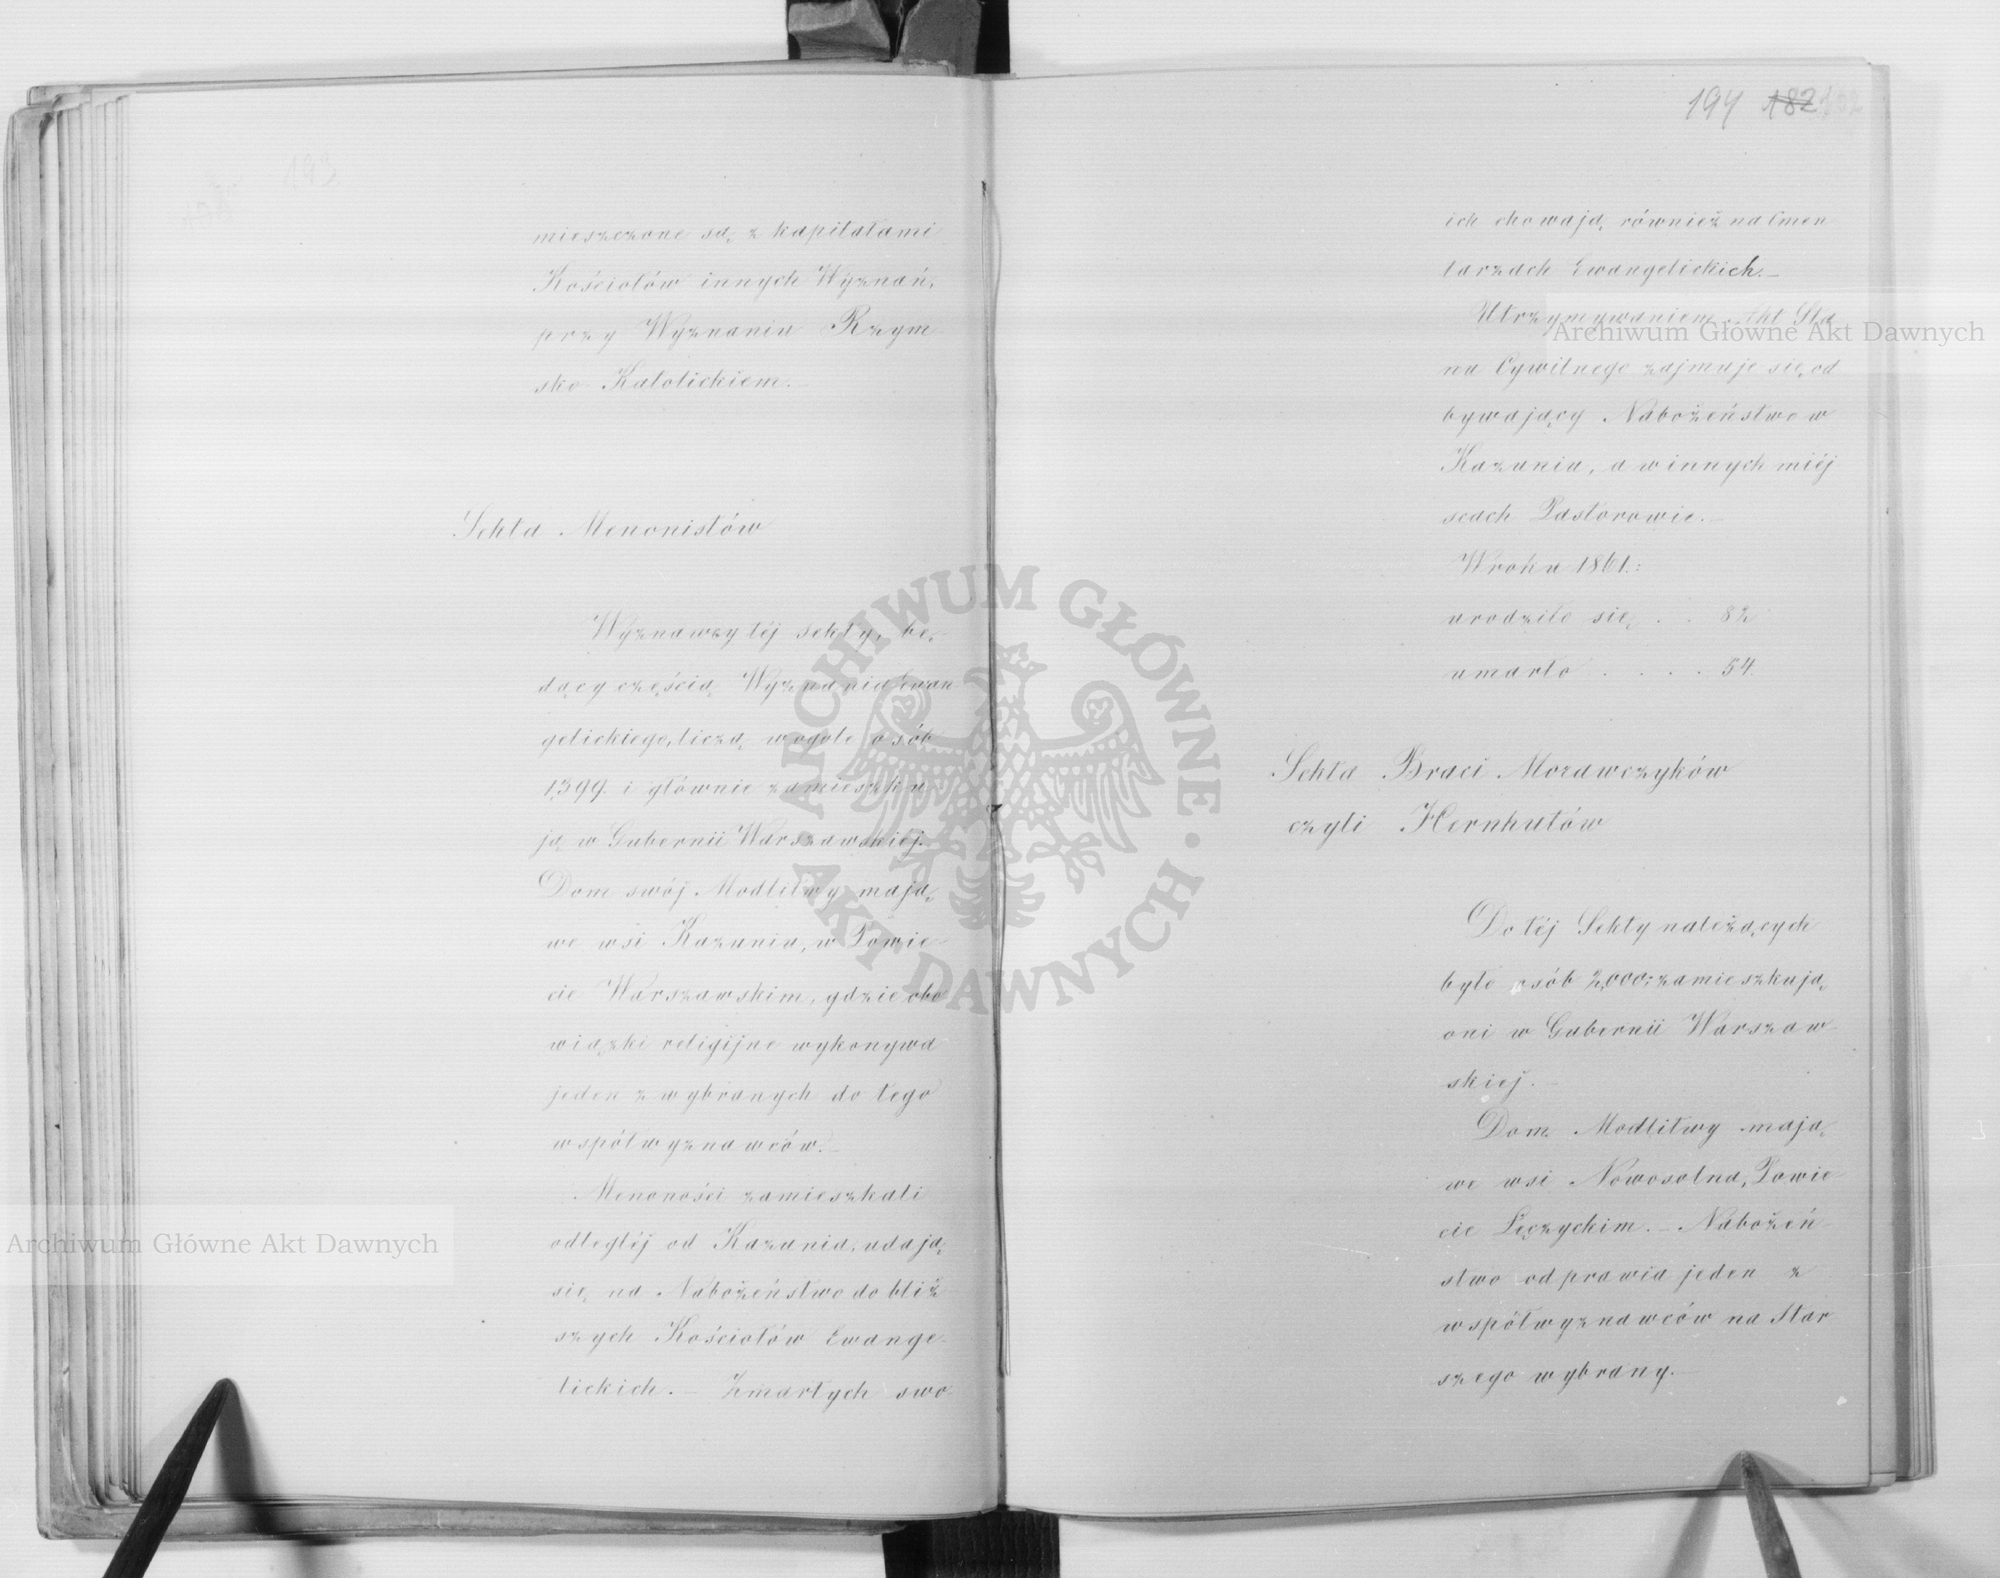 mieszczone są z kapitałami
Kościołów innych Wyznań,
przy Wyznaniu Rzym
sko Katolickiem.
Sekta Menonistów
Wyznawcy téj sekty, bę-
dący częścią Wyznania Ewan
gelickiego, liczą wogóle osób
1,399. i głównie zamieszku
ją w Gubernii Warszawskiéj.
Dom swój Modlitwy mają,
we wsi Kazuniu, w Powie-
cie Warszawskim, gdzie obo
wiązki religijne wykonywa
jeden z wybranych do tego
współwyznawców.-
Menoności zamieszkali
odległéj od Kazunia, udają
się na Nabożeństwo do bliż
szych Kościołów Ewange-
lickich. - Zmarłych swo
194 182
ich chowają, również na Cmen
tarzach Ewangelickich.-
Utrzymywaniem Akt Sta
nu Cywilnego zajmuje się od
bywający Nabożeństwo w
Kazuniu, a w innych miéj
scach Pastorowie.-
W roku 1861.:
urodziło się . . 82
umarło . . . . 54.
Sekta Braci Morawczyków
czyli Hernhutów
Do téj Sekty należących
było osób 2,000; zamieszkują
oni w Gubernii Warszaw-
skiej.-
Dom Modlitwy mają,
we wsi Nowosolna, Powie
cie Łęczyckim. - Nabożeń-
stwo odprawia jeden z
współwyznawców na Star
szego wybrany.-
Archiwum Główne Akt Dawnych
Archiwum Główne Akt Dawnych
ARCHIWUM GŁÓWNE · AKT DAWNYCH ·